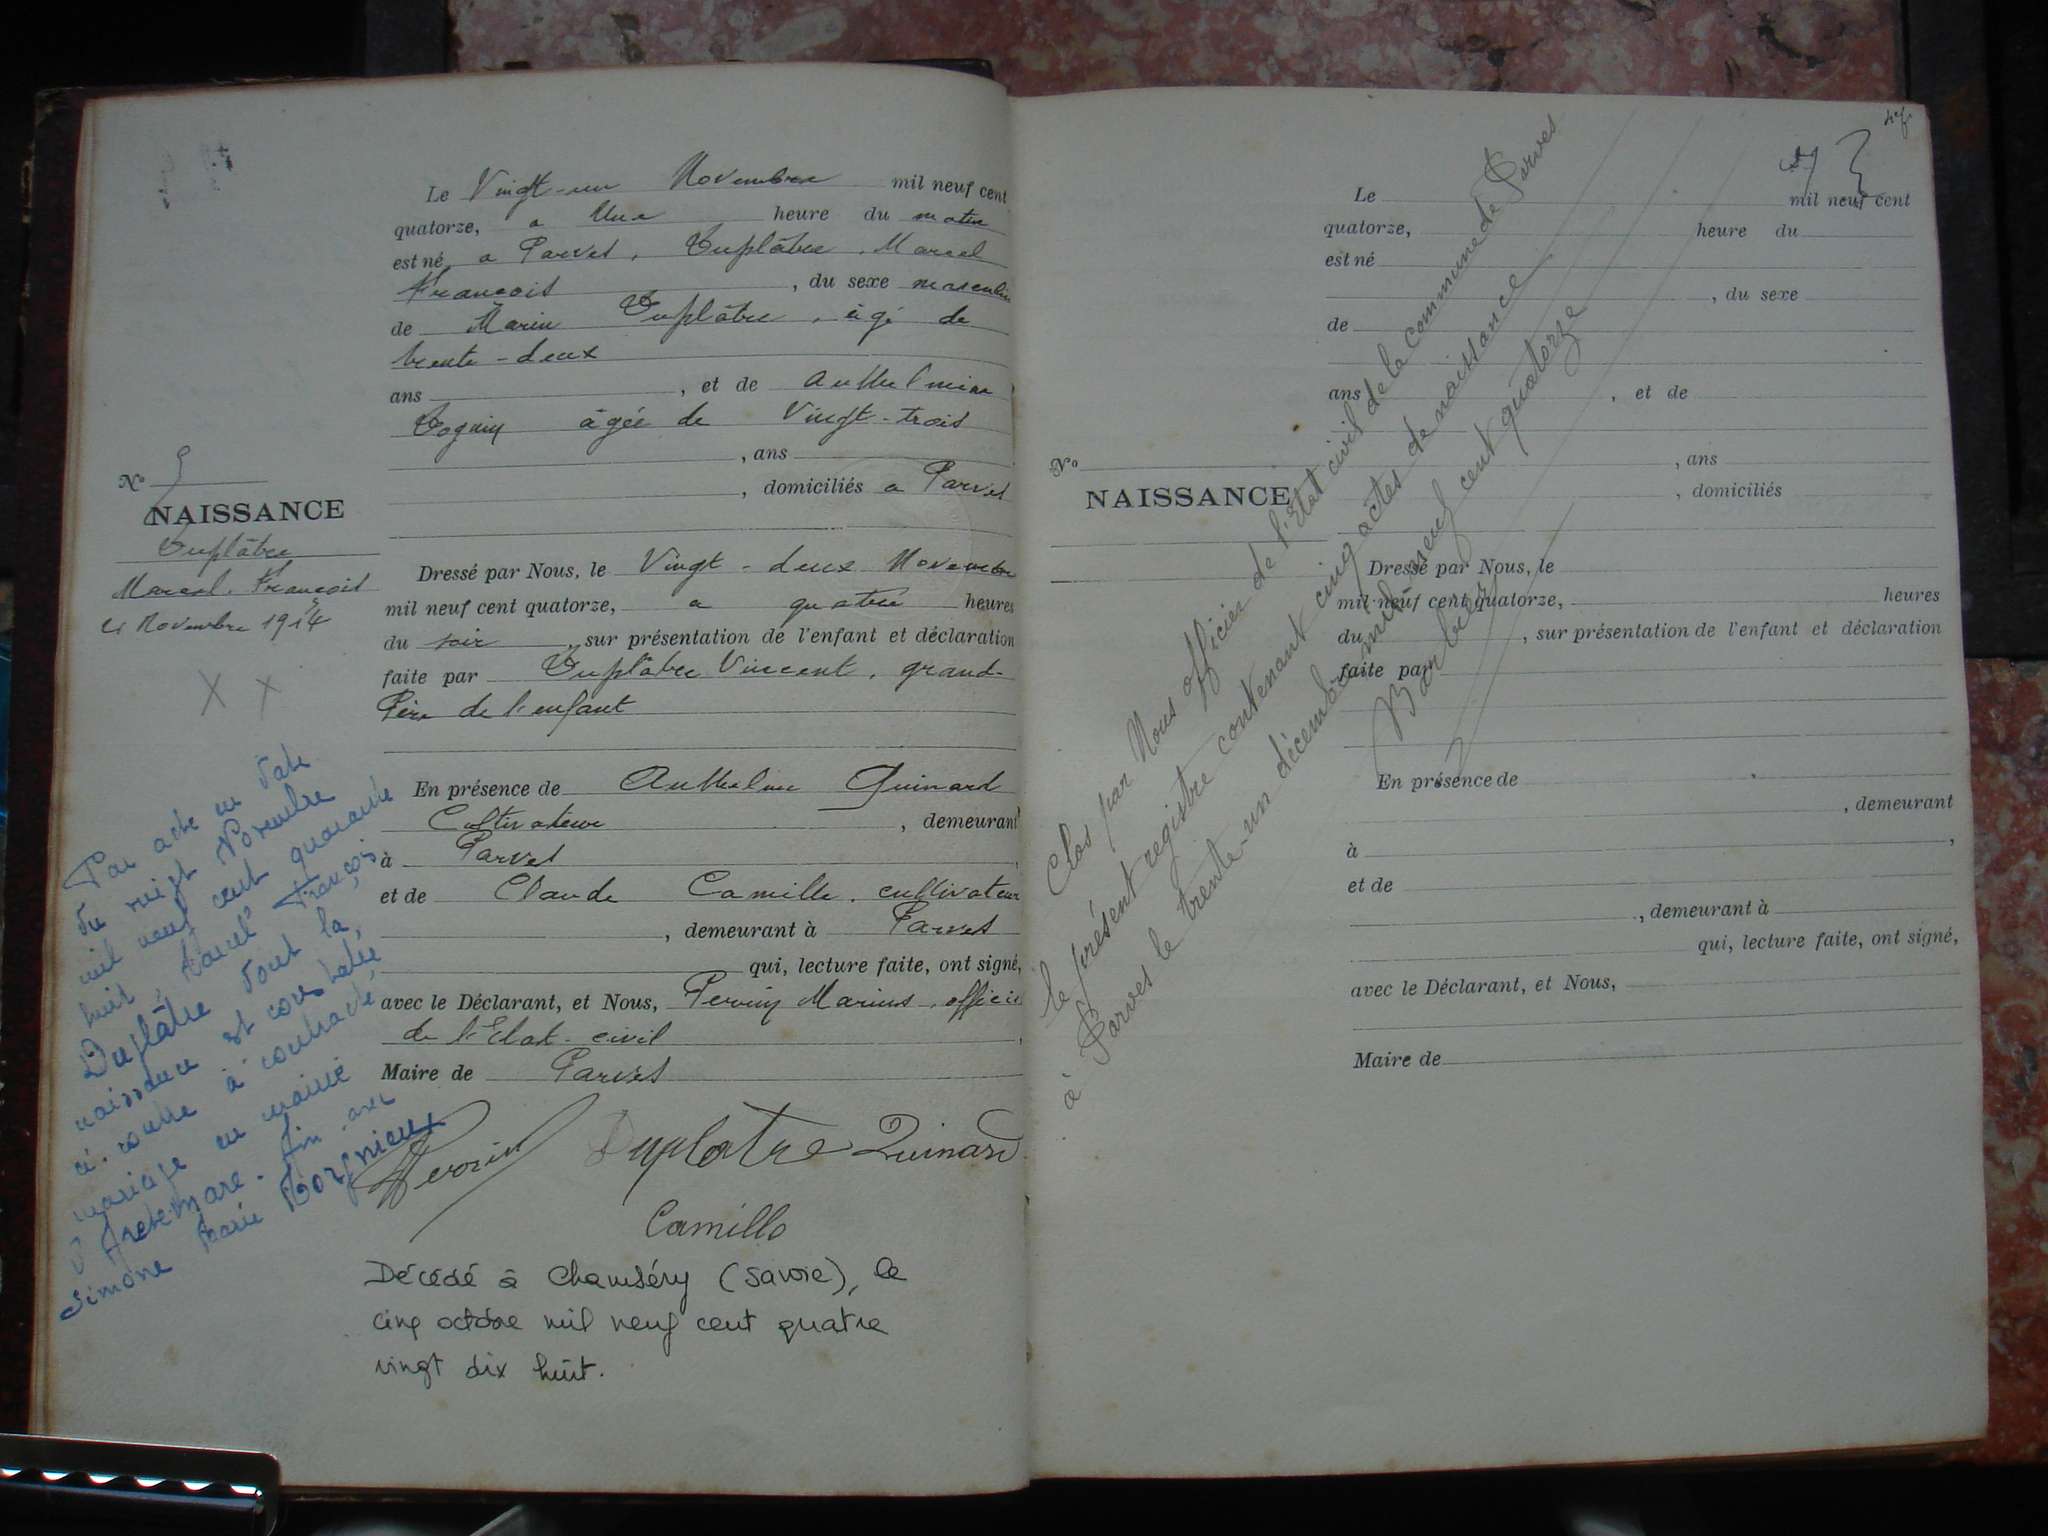 Le Vingt-un Novembre mil neuf cent
quatorze, a Une heure du matin
est né, a Parves, Duplâtre, Marcel
François, du sexe masculin
de Marin Duplâtre, âgé de
trente-deux
ans, et de Anthelmine
Cognin âgée de Vingt-trois
, ans
, domiciliés a Parves
Nº 5
NAISSANCE
Duplâtre
Marcel. François
21 Novembre 1914
X X
Dressé par Nous, le Vingt-deux Novembre
mil neuf cent quatorze, a quatre heures
du soir, sur présentation de l'enfant et déclaration
faite par Duplâtre Vincent, grand-
Père de l'enfant
En présence de Anthelme Guinard
Cultivateur, demeurant
à Parves
et de Claude Camille, cultivateur
, demeurant à Parves
qui, lecture faite, ont signé,
avec le Déclarant, et Nous, Perrin Marius, officier
de l'Etat-civil
Maire de Parves
Perrin Duplatre Guinard
Camille
Par acte en date
du vingt Novembre
mil neuf cent quarante
huit, Marcel François
Duplâtre dont la
naissance est constatée
ci-contre à contracté
mariage en mairie
d'Artemare. Ain avec
Simone Marie
Décédé à Chambéry (Savoie), le
cinq octobre mil neuf cent quatre
vingt dix huit.
Le mil neuf cent
quatorze, heure du
est né
, du sexe
de
ans, et de
Nº , ans
NAISSANCE , domiciliés
Dressé par Nous, le
mil neuf cent quatorze, heures
du , sur présentation de l'enfant et déclaration
faite par
En présence de
, demeurant
à ,
et de
, demeurant à
qui, lecture faite, ont signé,
avec le Déclarant, et Nous,
Maire de
Clos par Nous officier de l'Etat civil de la commune de Parves
le présent registre contenant cinq actes de naissance
à Parves le trente-un décembre mil neuf cent quatorze
Barbier